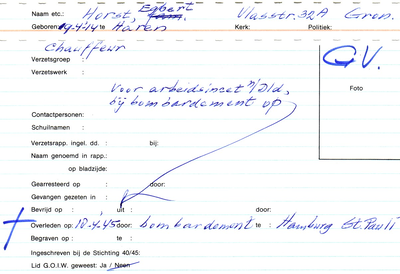 Naam etc.: Horst, Egbert Vlasstr. 32A Gron.
Geboren: 19-4-'14 te Haren Kerk: Politiek:
Chauffeur
Verzetsgroep :
Verzetswerk :
G.V.
Foto
Voor arbeidsincet n/Dld,
bij bombardement op
Contactpersonen:
Schuilnamen :
Verzetsrapp. ingel. dd. : bij:
Naam genoemd in rapp.:
op bladzijde:
Gearresteerd op : door:
Gevangen gezeten in :
Bevrijd op : uit : door:
Overleden op: 10-4-45 door: bombardement te : Hamburg St. Pauli
Begraven op : te :
Ingeschreven bij de Stichting 40/45:
Lid G.O.I.W. geweest: Ja / Neen